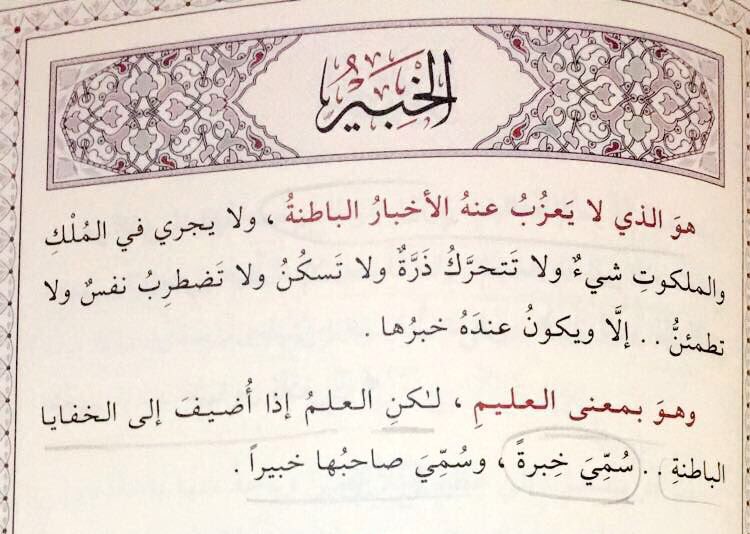 الخَبِيْرُ
هوَ الذي لا يَعزُبُ عنهُ الأخبارُ الباطنةُ ، ولا يجري في المُلْكِ
والملكوتِ شيءٌ ولا تَتحرَّكُ ذَرَّةٌ ولا تَسكُنُ ولا تَضطرِبُ نفسٌ ولا
تطمئنُّ . . إلَّا ويكونُ عندَهُ خبرُها .
وهوَ بمعنى العليمِ ، لـٰكنِ العلمُ إذا أُضيفَ إلى الخفايا
الباطنةِ . . سُمِّيَ خِبرةً ، وسُمِّيَ صاحبُها خبيراً .